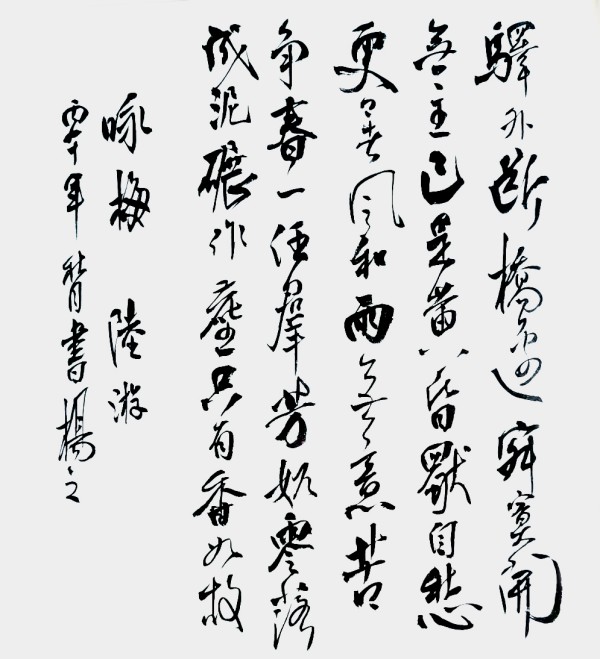 驛外断橋邊寂寞開
無主已是黄昏獨自愁
更著风和雨無意苦
争春一任羣芳妒零落
成泥碾作塵只有香如故
咏梅 陸游
年 書楊